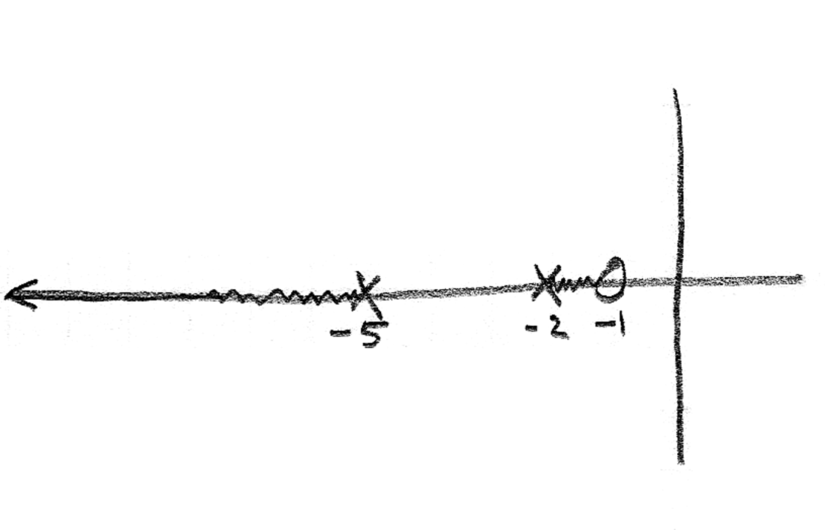 -5 -2 -1